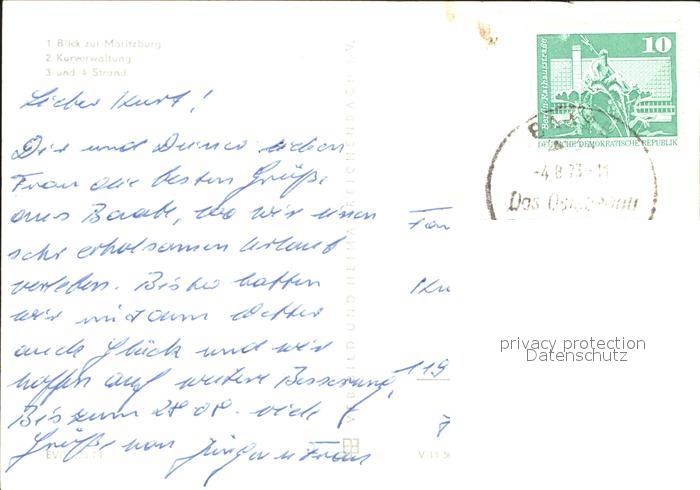 1 Blick zur Moritzburg
2 Kurverwaltung
3 und 4 Strand
Lieber Kurt!
Dir und Deiner lieben
Frau die besten Grüße
aus Baabe, wo wir einen
sehr erholsamen Urlaub
verleben. Bisher hatten
wir mit dem Wetter
auch Glück und wir
hoffen auf weitere Besserung,
Bis zum 28.08. viele
Grüße von Jürgen u Frau
VEB BILD UND HEIMAT REICHENBACH I.V.
V 11 50
10
Berlin-Rathausstraße
DEUTSCHE DEMOKRATISCHE REPUBLIK
-4.8.73-11
Das Ostseebad
Fam
Ku
119
privacy protection
Datenschutz